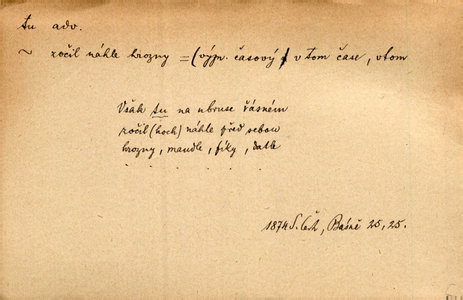 tu adv.
~ zočil náhle hrozny = (význ. časový) v tom čase, vtom
Však tu na ubruse řásném
zočil (hoch) náhle před sebou
hrozny, mandle, fíky, datle
. . . . . .
1874 S. Čech, Básně 25, 25.